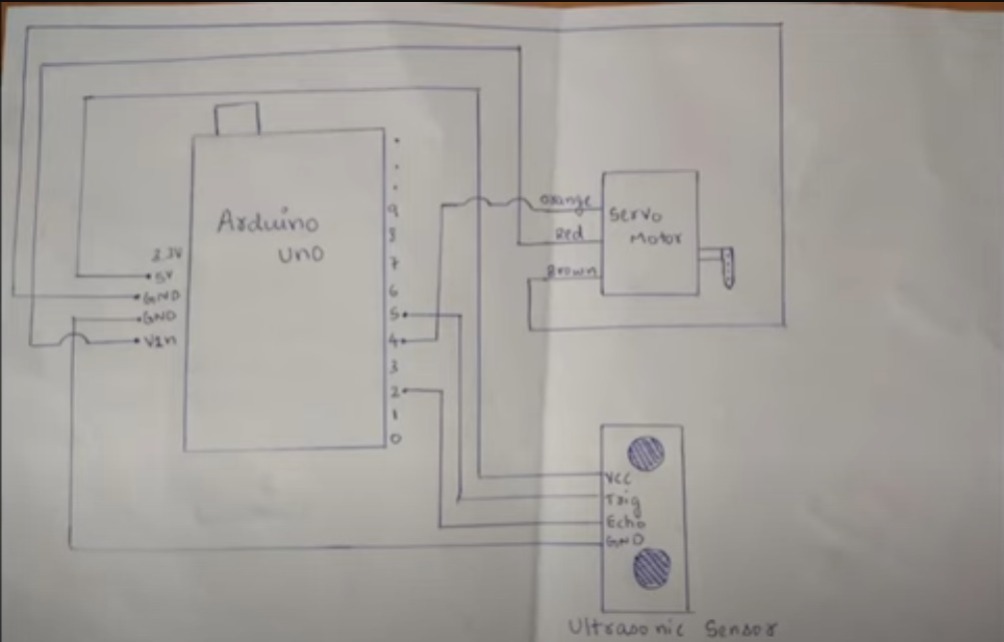 Arduino
uno
3.3V
5V
GND
GND
Vin
9
8
7
6
5
4
3
2
1
0
Orange
Red
Brown
Servo
Motor
Vcc
Trig
Echo
GND
Ultrasonic Sensor